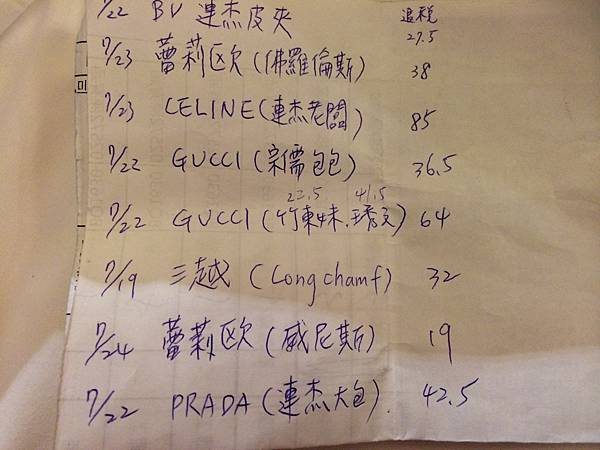 7/22 BV 連杰皮夾 退稅 27.5
7/23 蕾莉歐(佛羅倫斯) 38
7/23 CELINE(連杰老闆) 85
7/22 GUCCI(宗儒包包) 36.5
22.5 41.5
7/22 GUCCI(竹東妹.琇文) 64
7/19 三越 (Longchamf) 32
7/24 蕾莉歐(威尼斯) 19
7/22 PRADA(連杰大包). 42.5